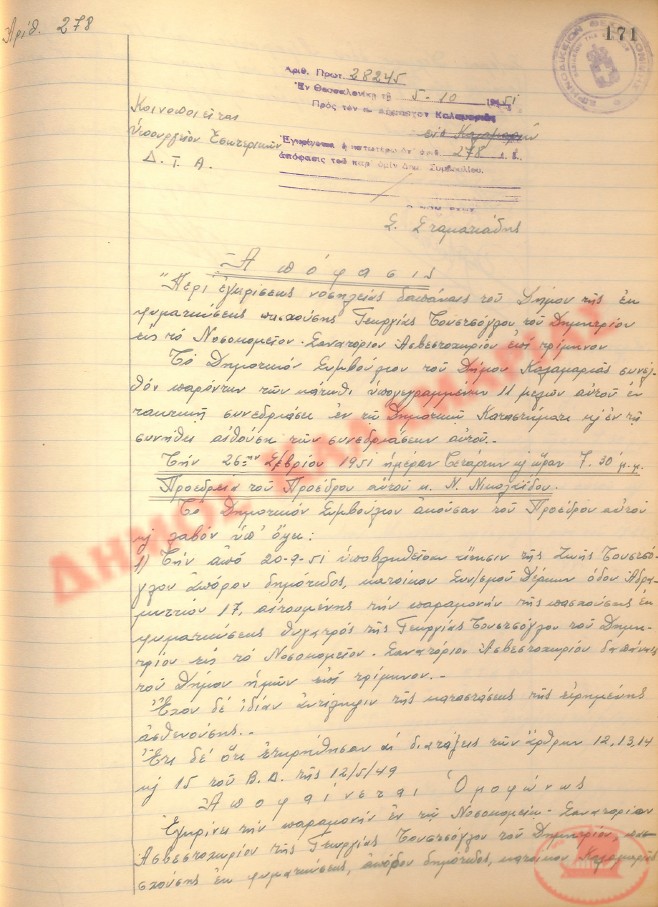 Αριθ. 278
171
Αριθ. Πρωτ. 28245
Ἐν Θεσσαλονίκῃ τῇ 5-10 1951
Πρὸς τὸν κ. Δήμαρχον Καλαμαριᾶς
εἰς Καλαμαριὰν
Ἐγκρίνεται ἡ κατωτέρω ὑπ' ἀριθ. 278 ἐ. ἔ.
ἀπόφασις τοῦ παρ' ὑμῖν Δημ. Συμβουλίου.
Κοινοποιεῖται
Ὑπουργεῖον Ἐσωτερικῶν
Δ. Τ. Α.
Σ. Σταματιάδης
Ἀπόφασις
Περὶ ἐγκρίσεως νοσηλείας δαπάναις τοῦ Δήμου τῆς ἐκ
φυματιώσεως πασχούσης Γεωργίας Τουσσόγλου τοῦ Δημητρίου
εἰς τὸ Νοσοκομεῖον-Σανατόριον Ἀσβεστοχωρίου ἐπὶ τρίμηνον
Τὸ Δημοτικὸν Συμβούλιον τοῦ Δήμου Καλαμαριᾶς συνελ
θὸν παρόντων τῶν κάτωθι ὑπογεγραμμένων 11 μελῶν αὐτοῦ ἐν
τακτικῇ συνεδριάσει ἐν τῷ Δημοτικῷ Καταστήματι κ ἐν τῇ
συνήθει αἰθούσῃ τῶν συνεδριάσεων αὐτοῦ.-
Τὴν 26ην Σ/βρίου 1951 ἡμέραν Τετάρτην κ ὥραν 7.30 μ.μ.
Προεδρείᾳ τοῦ Προέδρου αὐτοῦ κ. Ν. Νικολαΐδου.
Τὸ Δημοτικὸν Συμβούλιον ἀκοῦσαν τοῦ Προέδρου αὐτοῦ
κ λαβὸν ὑπ' ὄψει:
1) Τὴν ἀπὸ 20-9-51 ὑποβληθεῖσαν αἴτησιν τῆς Ζωῆς Τουσσό
γλου ἀπόρου δημότιδος, κατοίκου Συν/σμοῦ Δέρκων ὁδοῦ Ἀδρα
μυττίου 17, αἰτουμένης τὴν παραμονὴν τῆς πασχούσης ἐκ
φυματιώσεως θυγατρός της Γεωργίας Τουσσόγλου τοῦ Δημη-
τρίου εἰς τὸ Νοσοκομεῖον-Σανατόριον Ἀσβεστοχωρίου δαπάναις
τοῦ Δήμου ἡμῶν ἐπὶ τρίμηνον.-
Ἔχον δὲ ἰδίαν ἀντίληψιν τῆς καταστάσεως τῆς εἰρημένης
ἀσθενούσης.-
Ἔτι δὲ ὅτι ἐτηρήθησαν αἱ διατάξεις τῶν ἄρθρων 12, 13, 14
κ 15 τοῦ Β.Δ. τῆς 12/5/49
Ἀποφαίνεται Ὁμοφώνως
Ἐγκρίνει τὴν παραμονὴν ἐν τῷ Νοσοκομείῳ-Σανατορίῳ
Ἀσβεστοχωρίου τῆς Γεωργίας Τουσσόγλου τοῦ Δημητρίου πα-
σχούσης ἐκ φυματιώσεως, ἀπόρου δημότιδος, κατοίκου Καλαμαριᾶς
ΔΗΜΟΣ ΚΑΛΑΜΑΡΙΑΣ